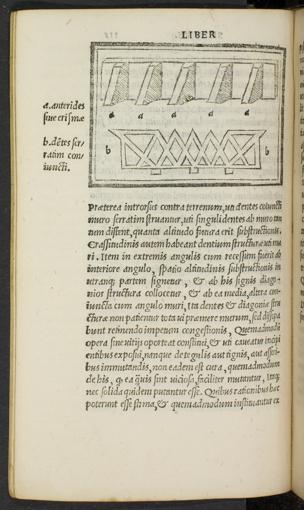 LIBER
a.anterides
siue erismæ
b.dētes ser-
ratim con-
iuncti.
a a a a a
b b
Præterea introrsus contra terrenum, uti dentes coniuncti
muro serratim struantur, uti singuli dentes ab muro tan
tum distent, quanta altitudo futura erit substructionis.
Crassitudinis autem habeant dentium structuræ uti mu
ri. Item in extremis angulis cum recessum fuerit ab
interiore angulo, spatio altitudinis substructionis in
utranq; partem signetur, & ab his signis diago-
nior structura collocetur, & ab ea media, altera con-
iuncta cum angulo muri, ita dentes & diagoniæ stru
cturæ non patientur tota ui præmere murum, sed dissipa
bunt retinendo impetum congestionis, Quemadmodū
opera sine uitijs oporteat constitui, & uti caueatur incipi
entibus exposui, nanque de tegulis aut tignis, aut asseri-
bus immutandis, non eadem est cura, quemadmodum
de his, q ea quis sint uitiosa, faciliter mutantur, Itaq;
nec solida quidem putantur esse. Quibus rationibus hæc
poterunt esse firma, & quemadmodum instituantur ex